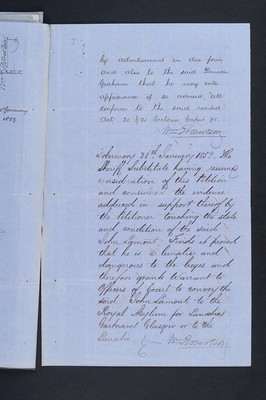 by advertisement in due form
and also to the said Duncan
Graham that he may enter
appearance if so advised, all
conform to the said recited
Act 20 & 21 Victoria Cap 71.
Wm Robertson
28th January 1859. The
Sheriff Substitute having resumed
consideration of the Petition
and considered the evidence
adduced in support thereof by
the Petitioner touching the state
and condition of the said
John Lamont, Finds it proved
that he is a lunatic and
dangerous to the lieges and
therefore grants Warrant to
Officers of Court to convey the
said John Lamont to the
Royal Asylum for Lunatics
Gartnavel Glasgow or to the
Lunatic
Wm Robertson
January
1859.